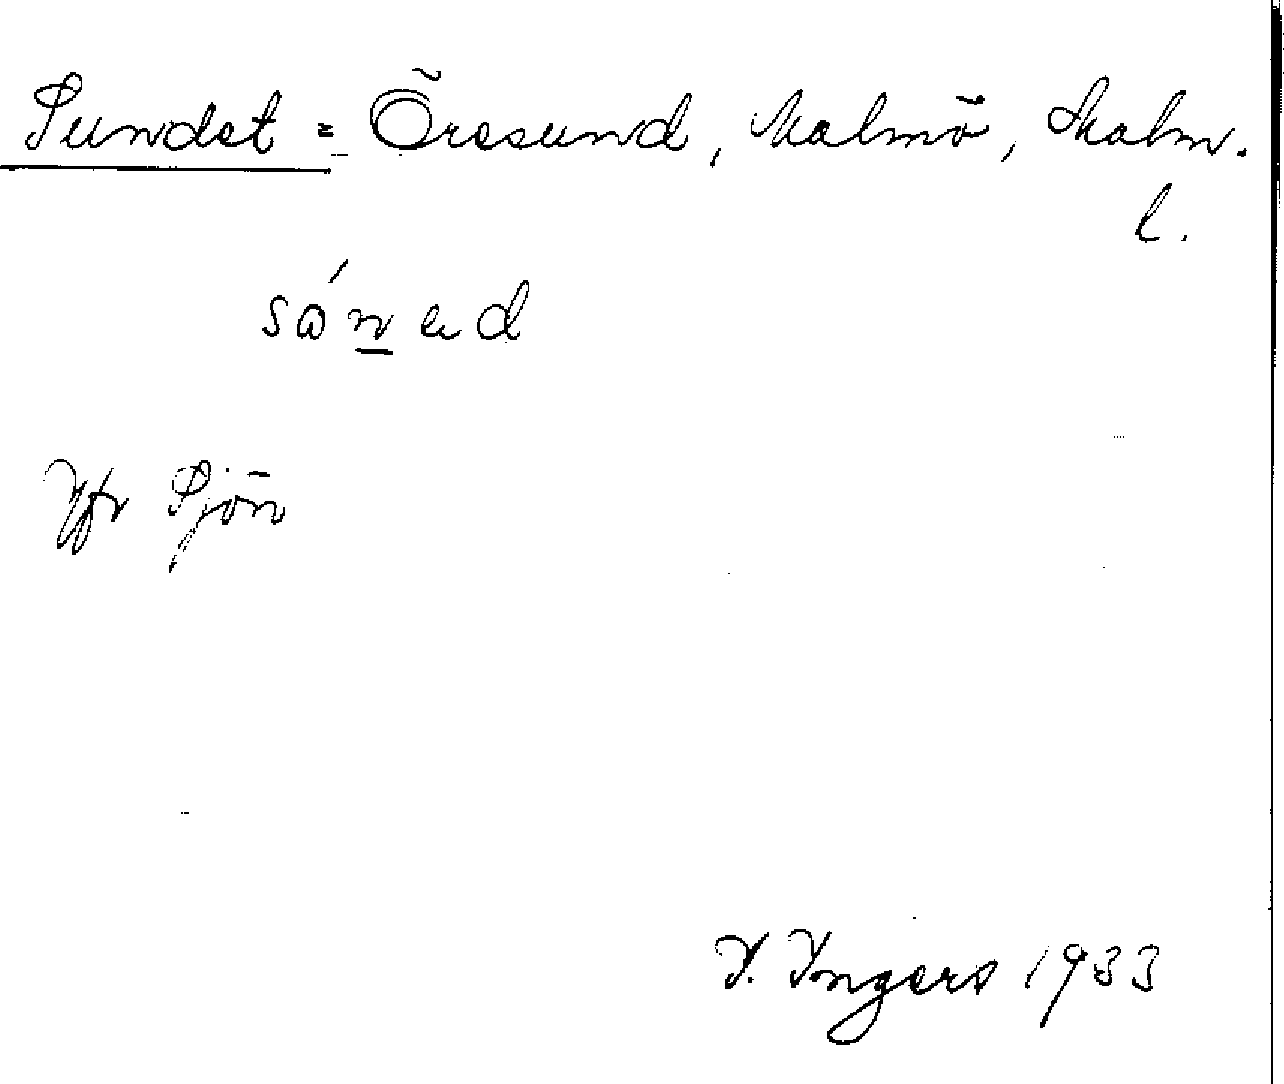 Sundet = Öresund, Malmö, Malm.
l.
sównad
Jfr Sjön
I. Ingers 1933